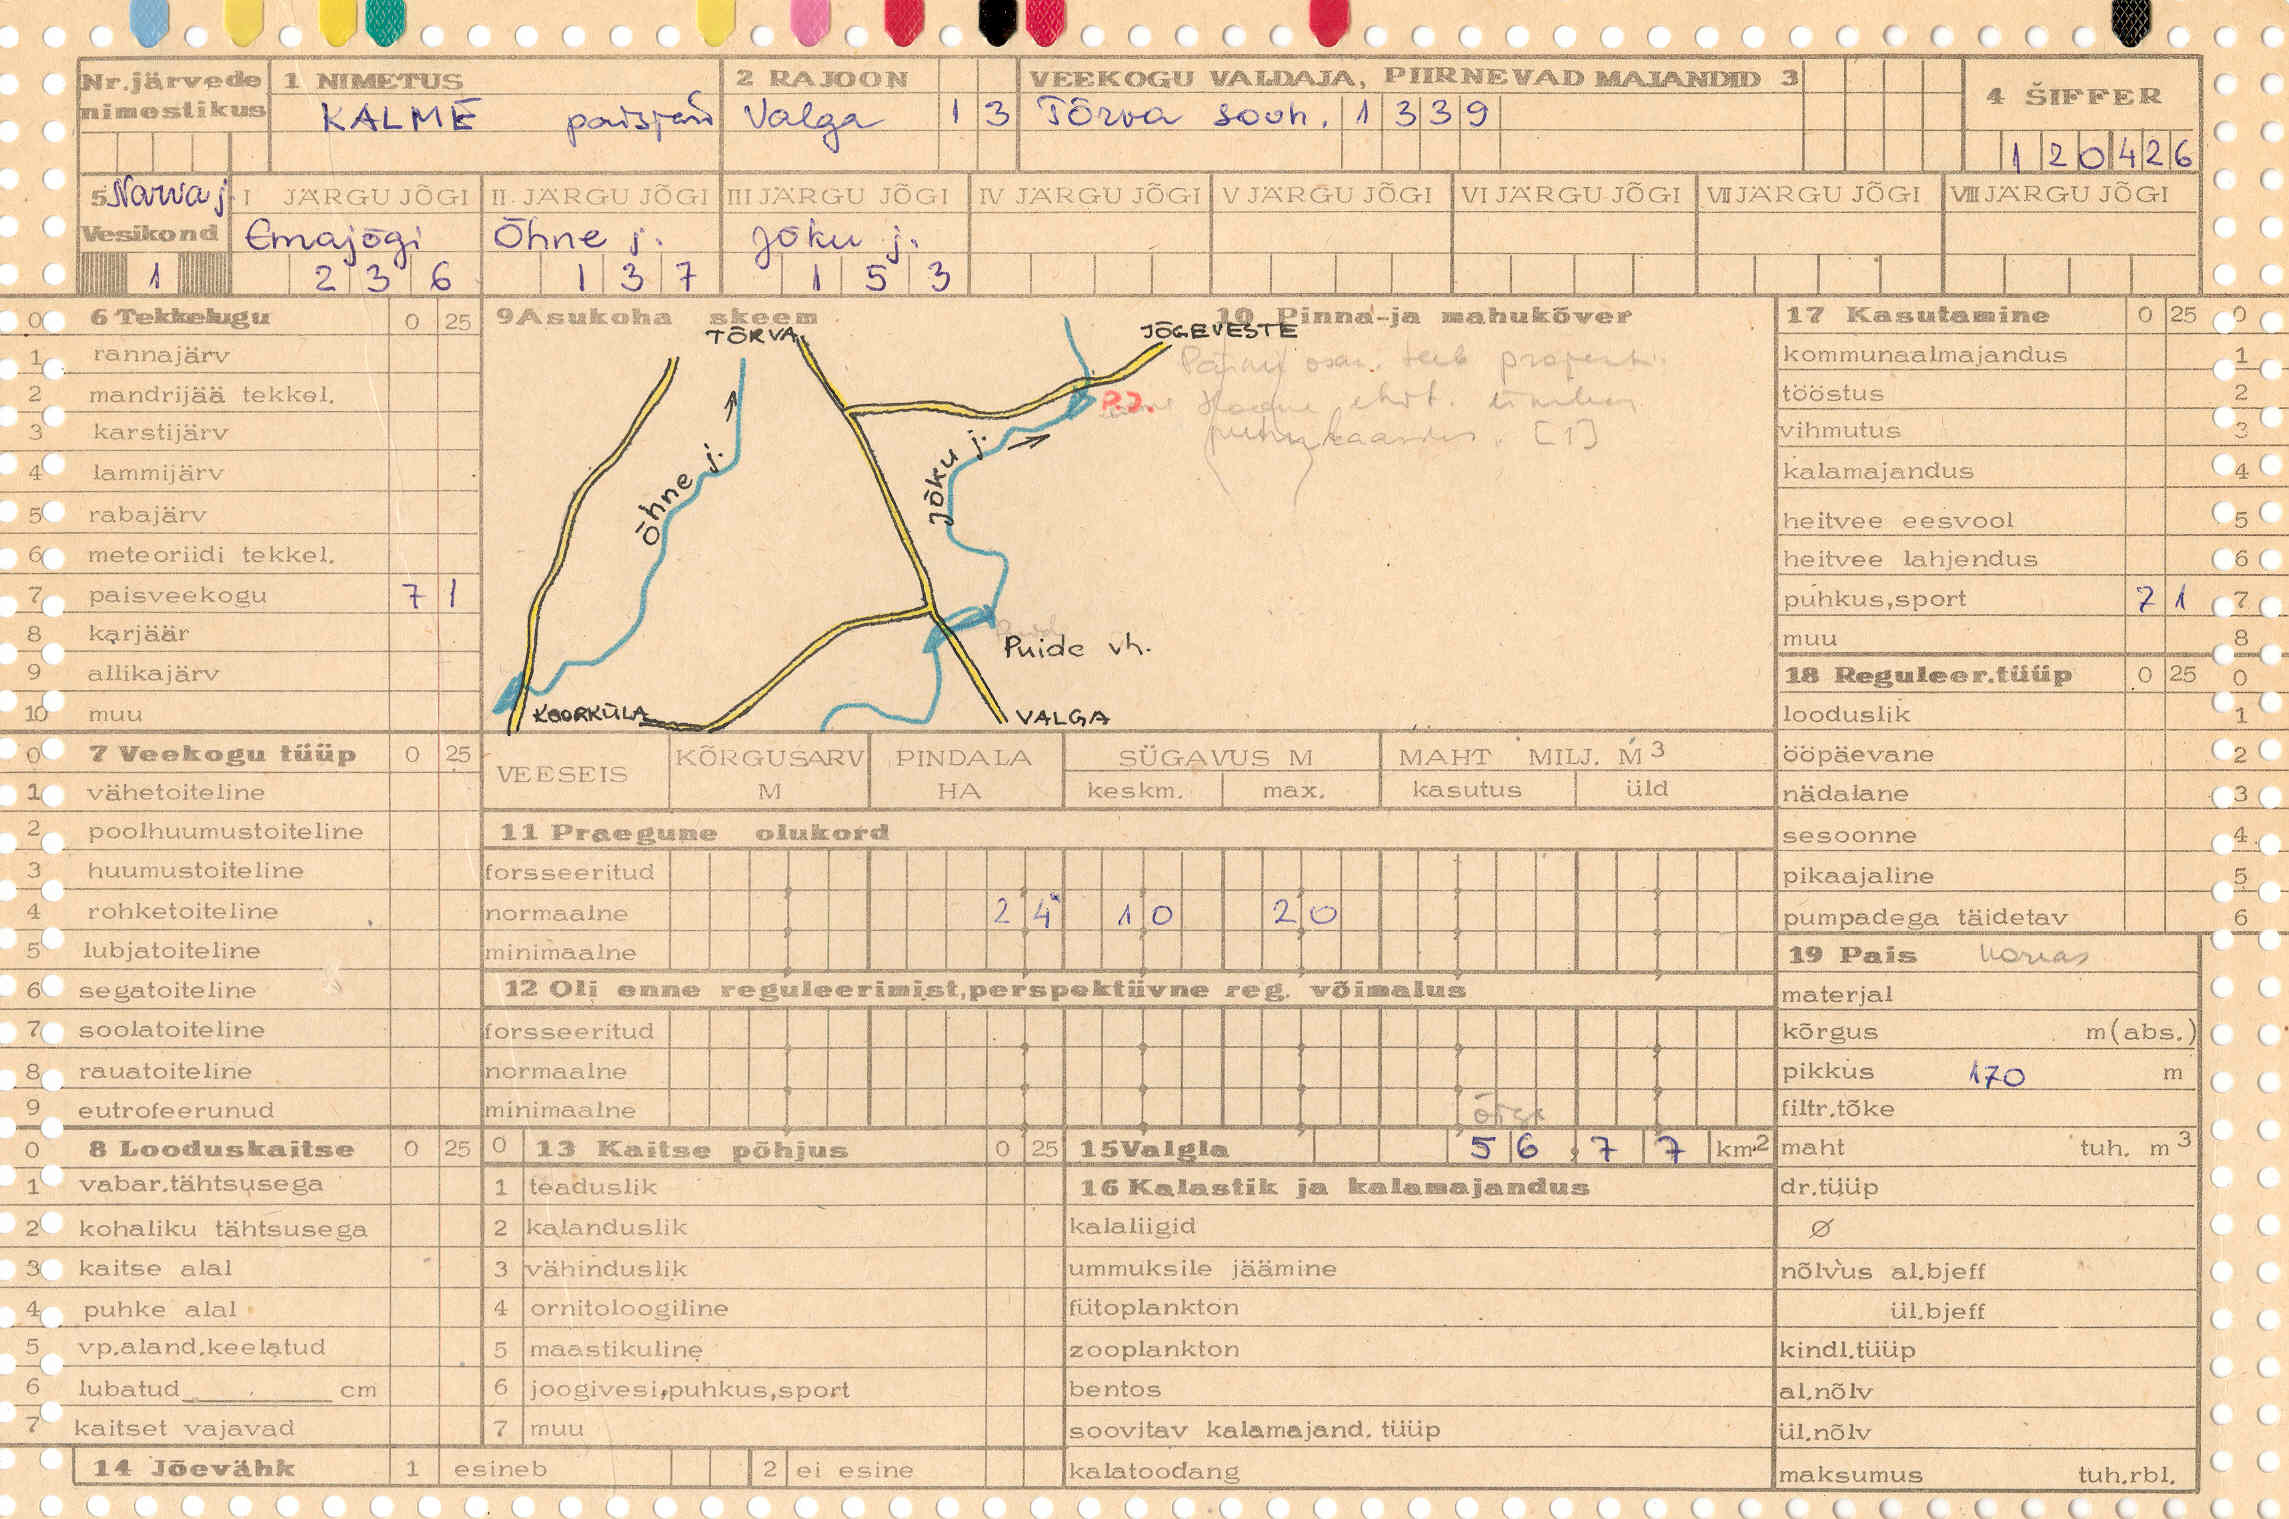 Nr.järvede nimestikus
1 NIMETUS
KALME paisjärv
2 RAJOON
Valga 1 3
VEEKOGU VALDAJA, PIIRNEVAD MAJANDID 3
Tõrva sovh. 1 3 3 9
4 ŠIFFER
1 2 0 4 2 6
5 Narva j.
Vesikond
1
I JÄRGU JÕGI
Emajõgi
2 3 6
II JÄRGU JÕGI
Õhne j.
1 3 7
III JÄRGU JÕGI
Jõku j.
1 5 3
IV JÄRGU JÕGI
V JÄRGU JÕGI
VI JÄRGU JÕGI
VII JÄRGU JÕGI
VIII JÄRGU JÕGI
0 6 Tekkelugu 0 25
1 rannajärv
2 mandrijää tekkel.
3 karstijärv
4 lammijärv
5 rabajärv
6 meteoriidi tekkel.
7 paisveekogu 7 1
8 karjäär
9 allikajärv
10 muu
0 7 Veekogu tüüp 0 25
1 vähetoiteline
2 poolhuumustoiteline
3 huumustoiteline
4 rohketoiteline
5 lubjatoiteline
6 segatoiteline
7 soolatoiteline
8 rauatoiteline
9 eutrofeerunud
0 8 Looduskaitse 0 25
1 vabar.tähtsusega
2 kohaliku tähtsusega
3 kaitse alal
4 puhke alal
5 vp.aland.keelatud
6 lubatud cm
7 kaitset vajavad
9 Asukoha skeem
TÕRVA
JÕGEVESTE
P.J.
Õhne j.
Jõku j.
Puide vh.
KOORKÜLA
VALGA
10 Pinna-ja mahukõver
[1]
VEESEIS
KÕRGUSARV M
PINDALA HA
SÜGAVUS M
keskm. max.
MAHT MILJ. M3
kasutus üld
11 Praegune olukord
forsseeritud
normaalne 2 4 1 0 2 0
minimaalne
12 Oli enne reguleerimist,perspektiivne reg. võimalus
forsseeritud
normaalne
minimaalne
0 13 Kaitse põhjus 0 25
1 teaduslik
2 kalanduslik
3 vähinduslik
4 ornitoloogiline
5 maastikuline
6 joogivesi,puhkus,sport
7 muu
14 Jõevähk 1 esineb 2 ei esine
15 Valgla 5 6 , 7 7 km2
16 Kalastik ja kalamajandus
kalaliigid
ummuksile jäämine
fütoplankton
zooplankton
bentos
soovitav kalamajand. tüüp
kalatoodang
17 Kasutamine 0 25 0
kommunaalmajandus 1
tööstus 2
vihmutus 3
kalamajandus 4
heitvee eesvool 5
heitvee lahjendus 6
puhkus,sport 7 1 7
muu 8
18 Reguleer.tüüp 0 25 0
looduslik 1
ööpäevane 2
nädalane 3
sesoonne 4
pikaajaline 5
pumpadega täidetav 6
19 Pais korras
materjal
kõrgus m(abs.)
pikkus 170 m
filtr.tõke
maht tuh. m3
dr.tüüp
Ø
nõlvus al.bjeff
ül.bjeff
kindl.tüüp
al.nõlv
ül.nõlv
maksumus tuh.rbl.